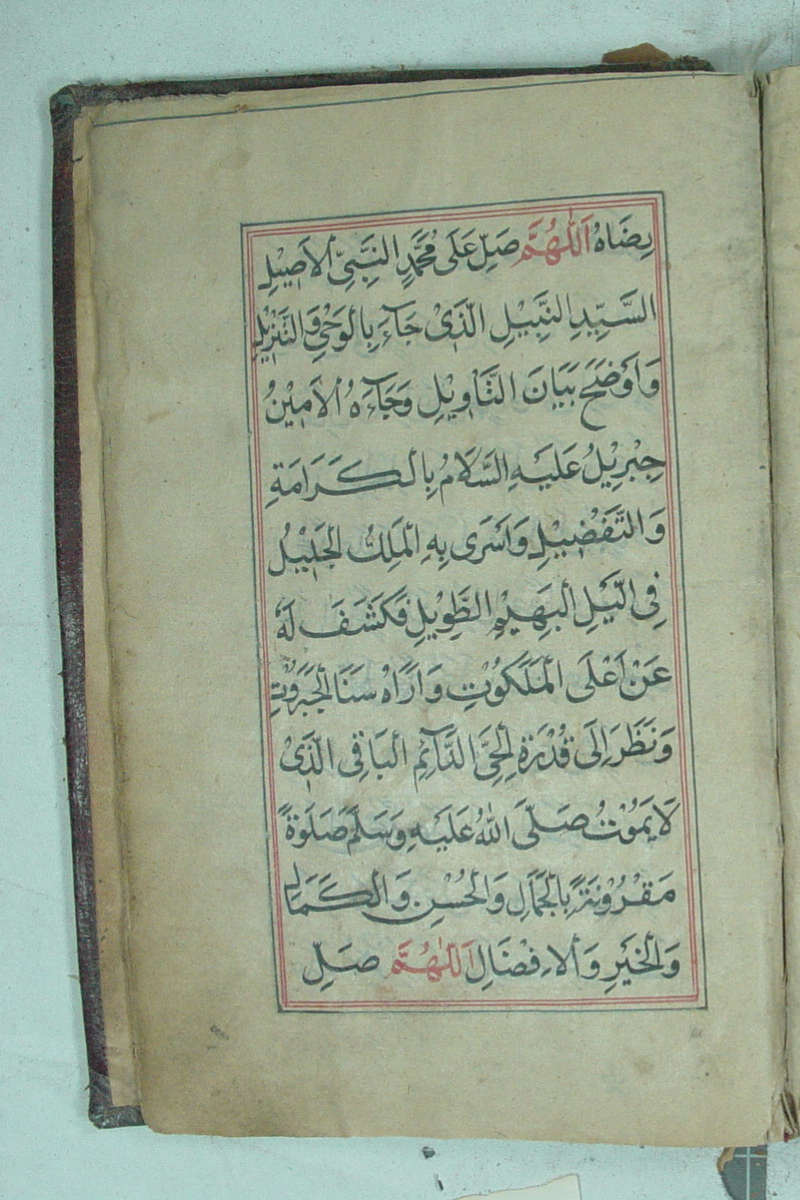 رِضَاهُ اَللّٰهُمَّ صَلِّ عَلَى مُحَمَّدٍ النَّبِيِّ الْاَصِيْلِ
السَّيِّدِ النَّبِيْلِ الَّذِىْ جَآءَ بِالْوَحْيِ وَالتَّنْزِيْلِ
وَاَوْضَحَ بَيَانَ التَّاْوِيْلِ وَجَآءَهُ الْاَمِيْنُ
جِبْرِيْلُ عَلَيْهِ السَّلَامُ بِالْكَرَامَةِ
وَالتَّفْضِيْلِ وَاَسْرَى بِهِ الْمَلِكُ الْجَلِيْلُ
فِى الَّيْلِ الْبَهِيْمِ الطَّوِيْلِ فَكَشَفَ لَهُ
عَنْ اَعْلَى الْمَلَكُوْتِ وَاَرَاهُ سَنَا الْجَبَرُوْتِ
وَنَظَرَ اِلَى قُدْرَةِ الْحَىِّ الدَّآئِمِ الْبَاقِى الَّذِىْ
لَا يَمُوْتُ صَلَّى اللهُ عَلَيْهِ وَسَلَّمَ صَلٰوةً
مَقْرُوْنَةً بِالْجَمَالِ وَالْحُسْنِ وَالْكَمَالِ
وَالْخَيْرِ وَالْاِفْضَالِ اَللّٰهُمَّ صَلِّ